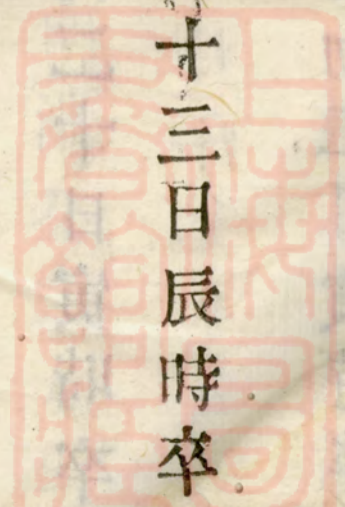 十三日辰時卒